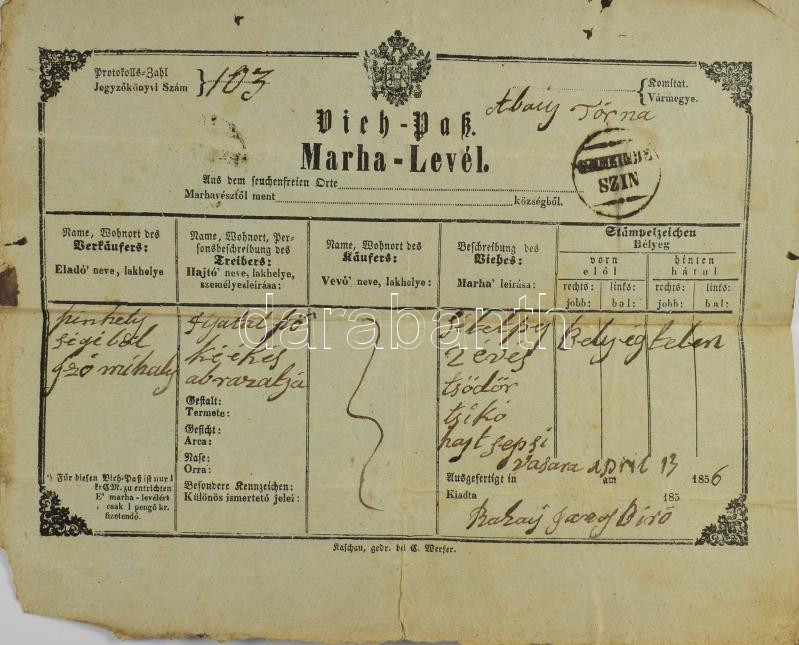 Protokolls-Zahl
Jegyzőkönyvi Szám } 103
{ Komitat.
Vármegye.
Abauj Torna
Vieh-Paß.
Marha-Levél.
SZIN
Aus dem seuchenfreien Orte
Marhavésztől ment községből.
Name, Wohnort des
Verkäufers:
Eladó' neve, lakhelye
Name, Wohnort, Per-
sonsbeschreibung des
Treibers:
Hajtó' neve, lakhelye,
személyesleirása:
Name, Wohnort des
Käufers:
Vevő' neve, lakhelye:
Beschreibung des
Viehes:
Marha' leírása:
Stämpelzeichen
Bélyeg
vorn
elől
hinten
hátul
rechts:
jobb:
links:
bal:
rechts:
jobb:
links:
bal:
mihaly
kékes
abrazatja
Gestalt:
Termete:
Gesicht:
Arca:
Nase:
Orra:
Besondere Kennzeichen:
Különös ismertető jelei:
2 éves
tsödör
tsikó
hajt sepsi
vasara april 13
Belyegtelen
*) Für diesen Vieh-Paß ist nur 1
kr CM. zu entrichten
E' marha-levélért
csak 1 pengő kr.
fizetendő.
Ausgefertigt in am 1856
Kiadta 185
Bíró
Kaschau, gedr. bei C. Werfer.
darabanth